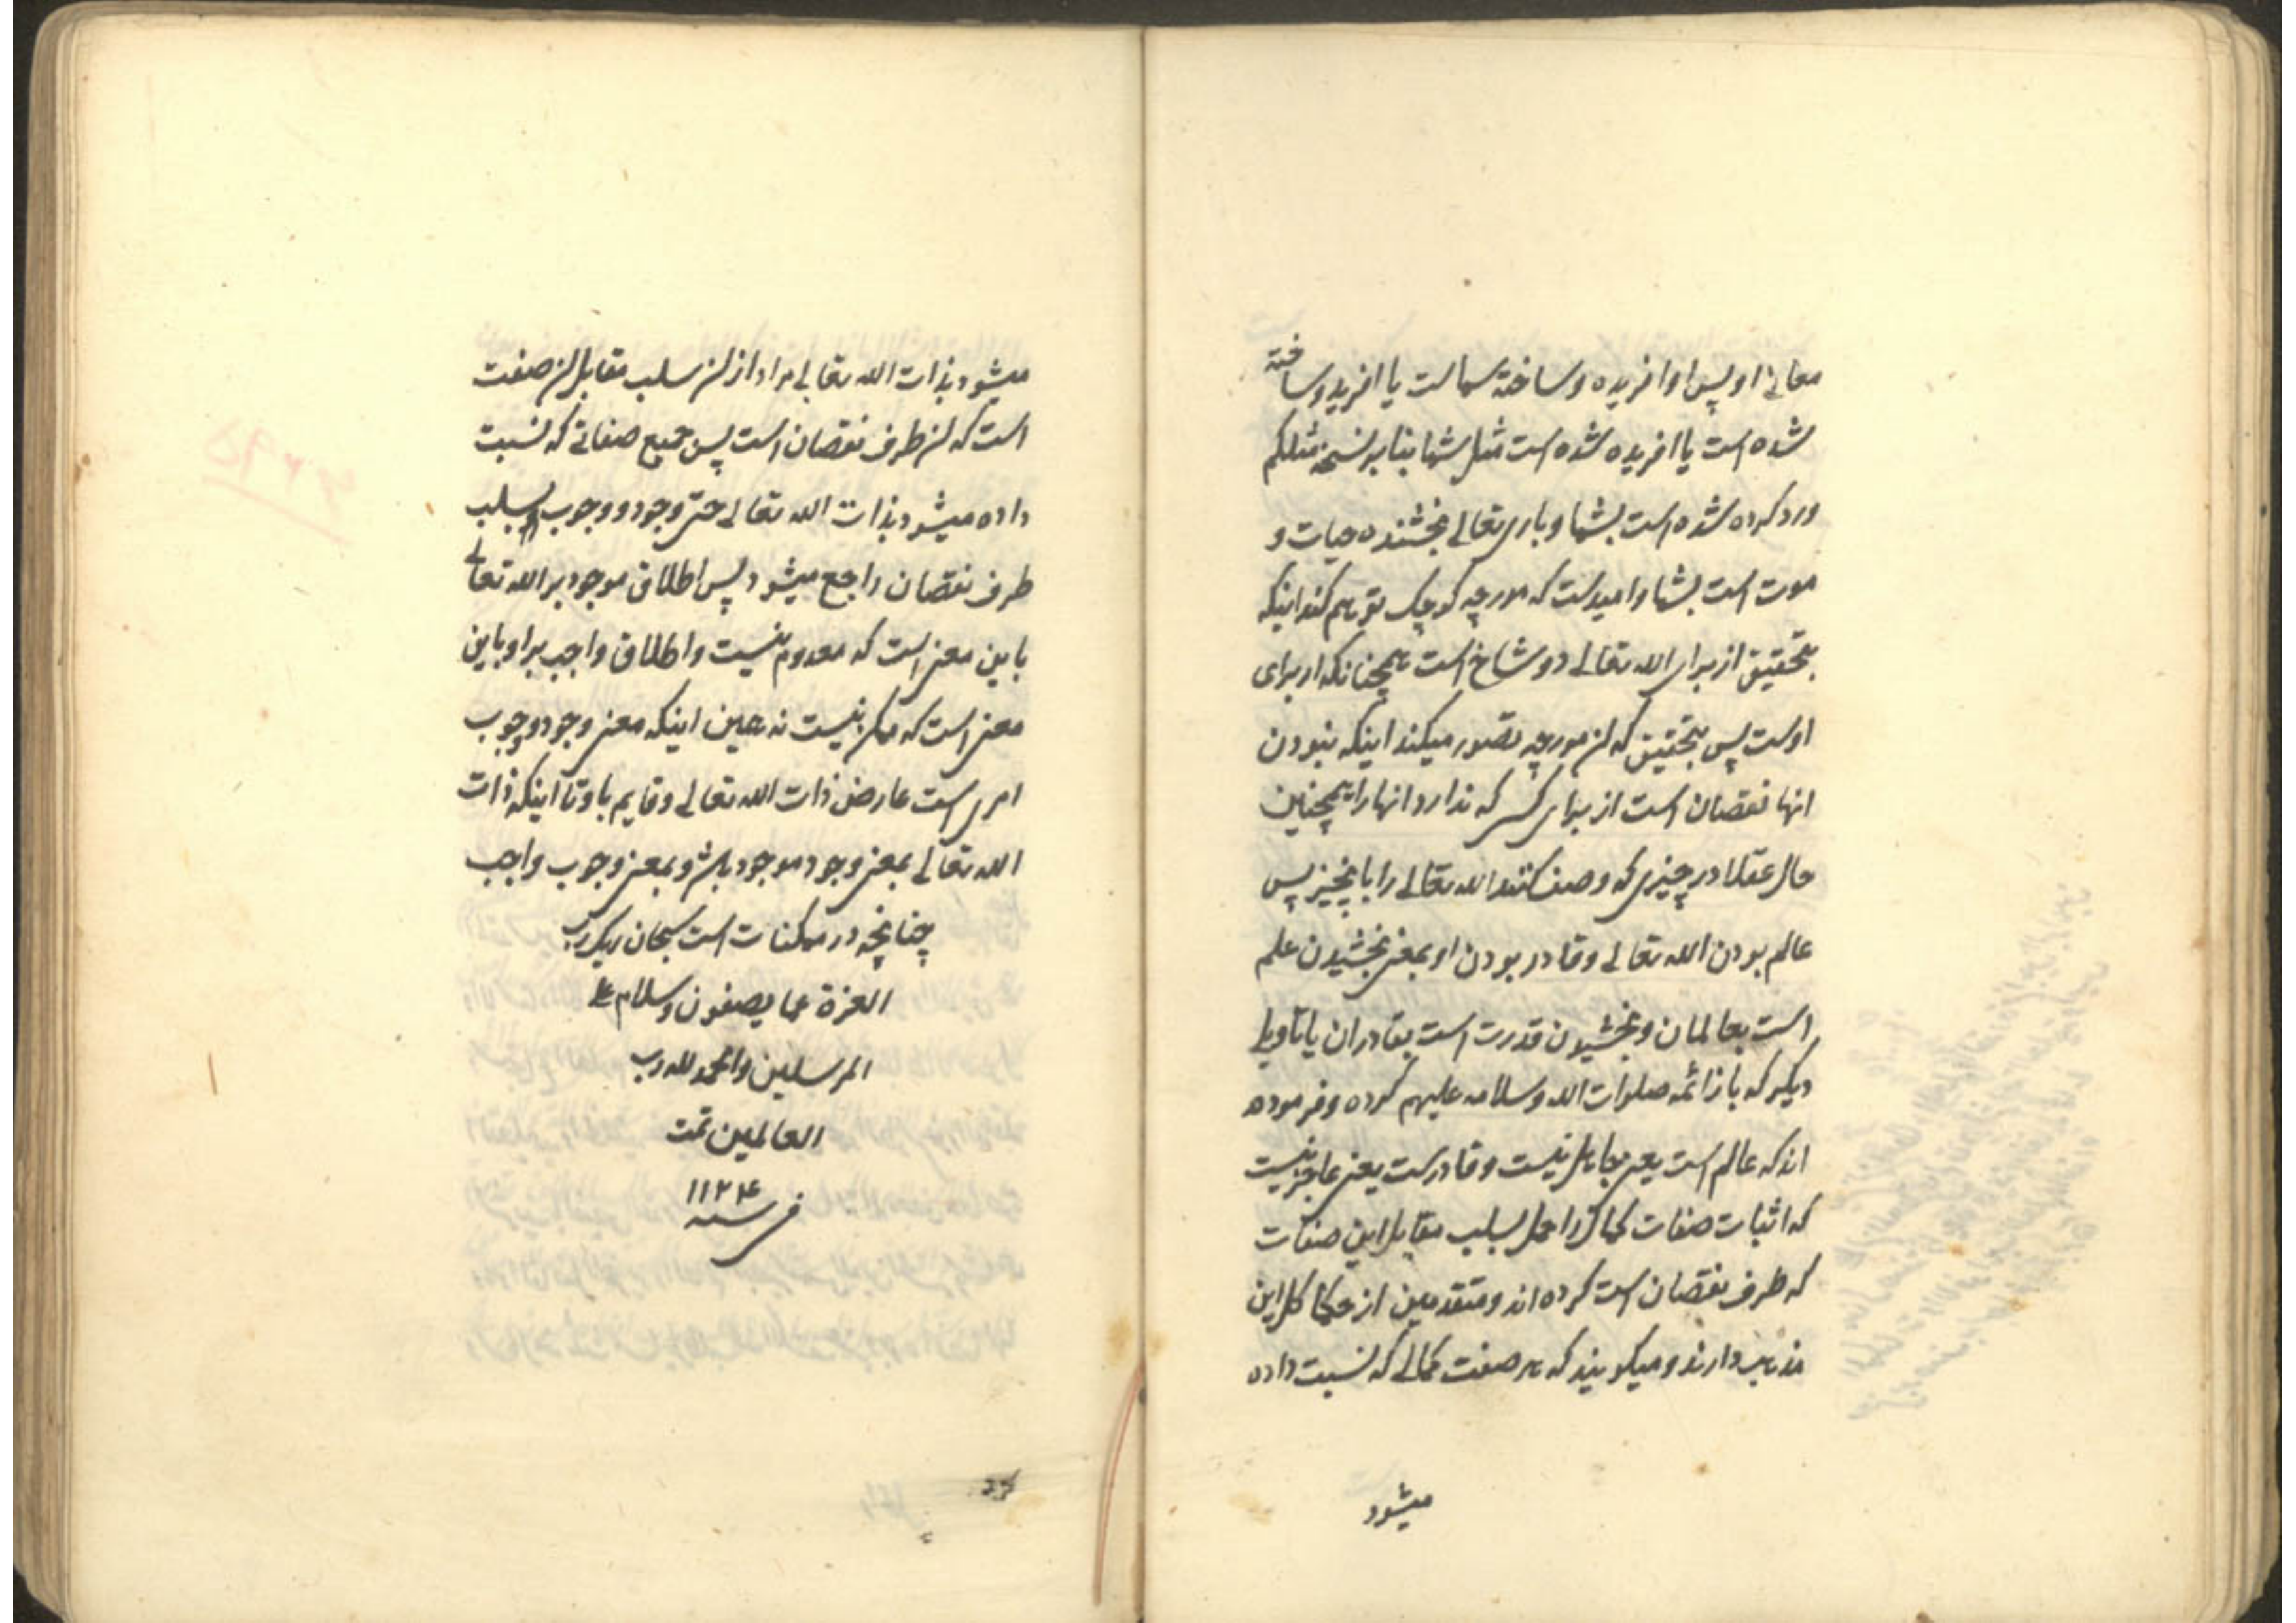 معانی او پس او افریده و ساخته شماست یا افریده و ساخته
شده است یا افریده شده است مثل شما بنا بر نسخه مثلکم
ورد کرده شده است بشما و باری تعالی بخشنده حیات و
موت است بشما و امیدست که مورچه کوچک توهم کند اینکه
بتحقیق از برای الله تعالی دو شاخ است همچنانکه از برای
اوست پس بتحقیق که آن مورچه تصور میکند اینکه نبودن
انها نقصان است از برای کسی که ندارد انها را همچنین
حال عقلا در چیزی که وصف کنند الله تعالی را بانچیز پس
عالم بودن الله تعالی و قادر بودن او بمعنی بخشیدن علم
است بعالمان و بخشیدن قدرت است بقادران یا تاویل
دیکر که باز ائمه صلوات الله و سلامه علیهم کرده و فرموده
اند که عالم است یعنی جاهل نیست و قادرست یعنی عاجز نیست
که اثبات صفات کمال را حمل بسلب مقابل این صفات
که طرف نقصان است کرده اند و متقدمین از حکما کل این
مذهب دارند و میکویند که هر صفت کمالی که نسبت داده
میشود
میشود بذات الله تعالی مراد از آن سلب مقابل آن صفت
است که آن طرف نقصان است پس جمیع صفاتی که نسبت
داده میشود بذات الله تعالی حتی وجود و وجوب بسلب
طرف نقصان راجع میشود پس اطلاق موجود بر الله تعالی
باین معنی است که معدوم نیست و اطلاق واجب بر او باین
معنی است که ممکن نیست نه همین اینکه معنی وجود و وجوب
امری است عارض ذات الله تعالی و قایم باو تا اینکه ذات
الله تعالی بمعنی وجود موجود باشد و بمعنی وجوب واجب
چنانچه در ممکنات است سبحان ربک رب
العزة عما یصفون و سلام علی
المرسلین و الحمد لله رب
العالمین تمت
فی سنه ۱۱۲۴